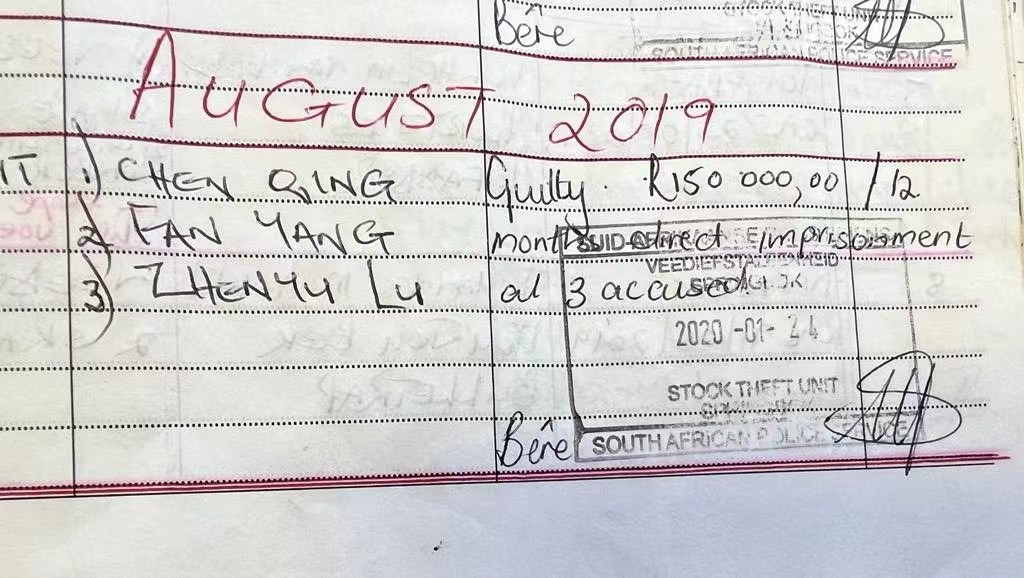 Bêre
SOUTH AFRICAN POLICE SERVICE
AUGUST 2019
1) CHEN QING Guilty. R150 000,00 / 12
2) FAN YANG months direct imprisonment
3) ZHENYU LU al 3 accused.
VEEDIEFSTALEENHEID
2020-01-24
STOCK THEFT UNIT
Bêre
SOUTH AFRICAN POLICE SERVICE